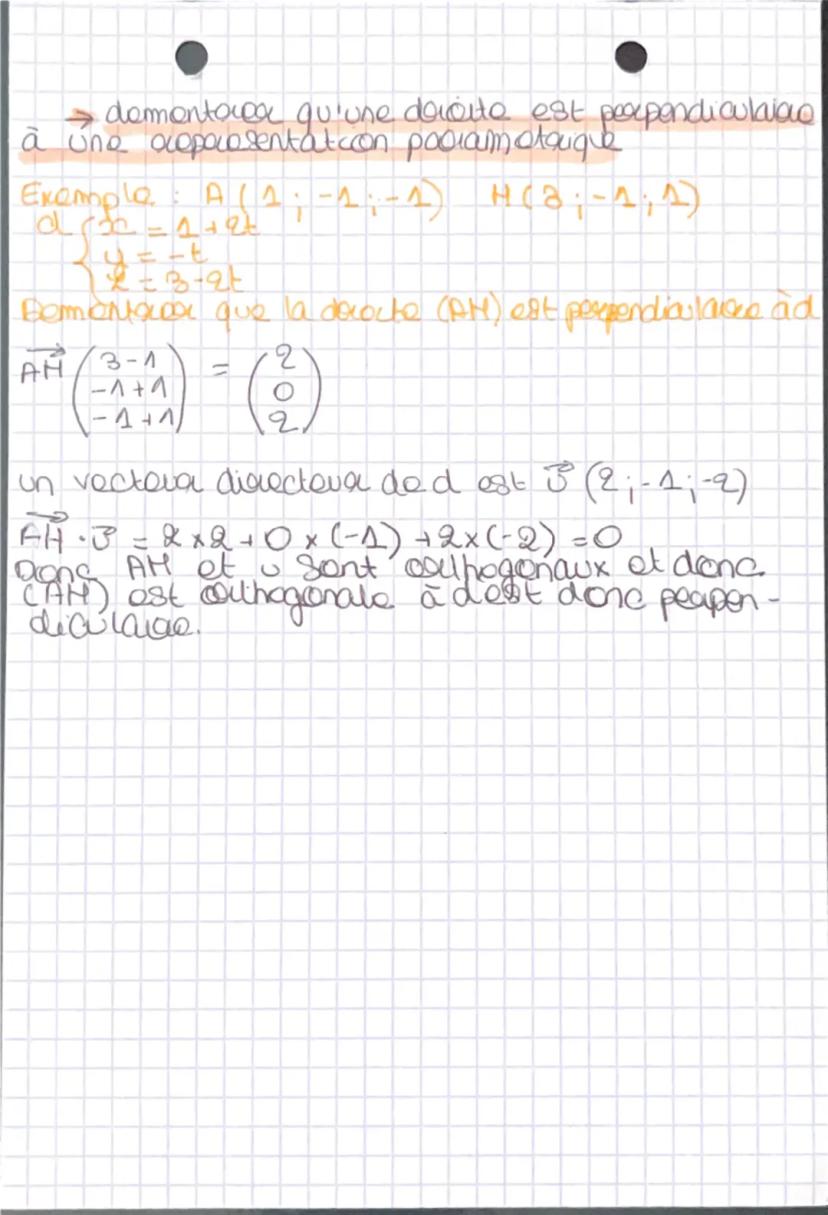 → demontrer qu'une droite est perpendiculaire
à une representation parametrique
Exemple : A (1 ; -1 ; -1) H (3 ; -1 ; 1)
d { x = 1 + 2t
y = -t
z = 3 - 2t
Demontrer que la droite (AH) est perpendiculaire à d
AH→ ( 3-1 ) = ( 2 )
( -1+1 ) ( 0 )
( -1+1 ) ( 2 )
un vecteur directeur de d est u→ (2 ; -1 ; -2)
AH→ · u→ = 2 × 2 + 0 × (-1) + 2 × (-2) = 0
Donc AH et u sont orthogonaux et donc
(AH) est orthogonale à d est donc perpen-
diculaire.